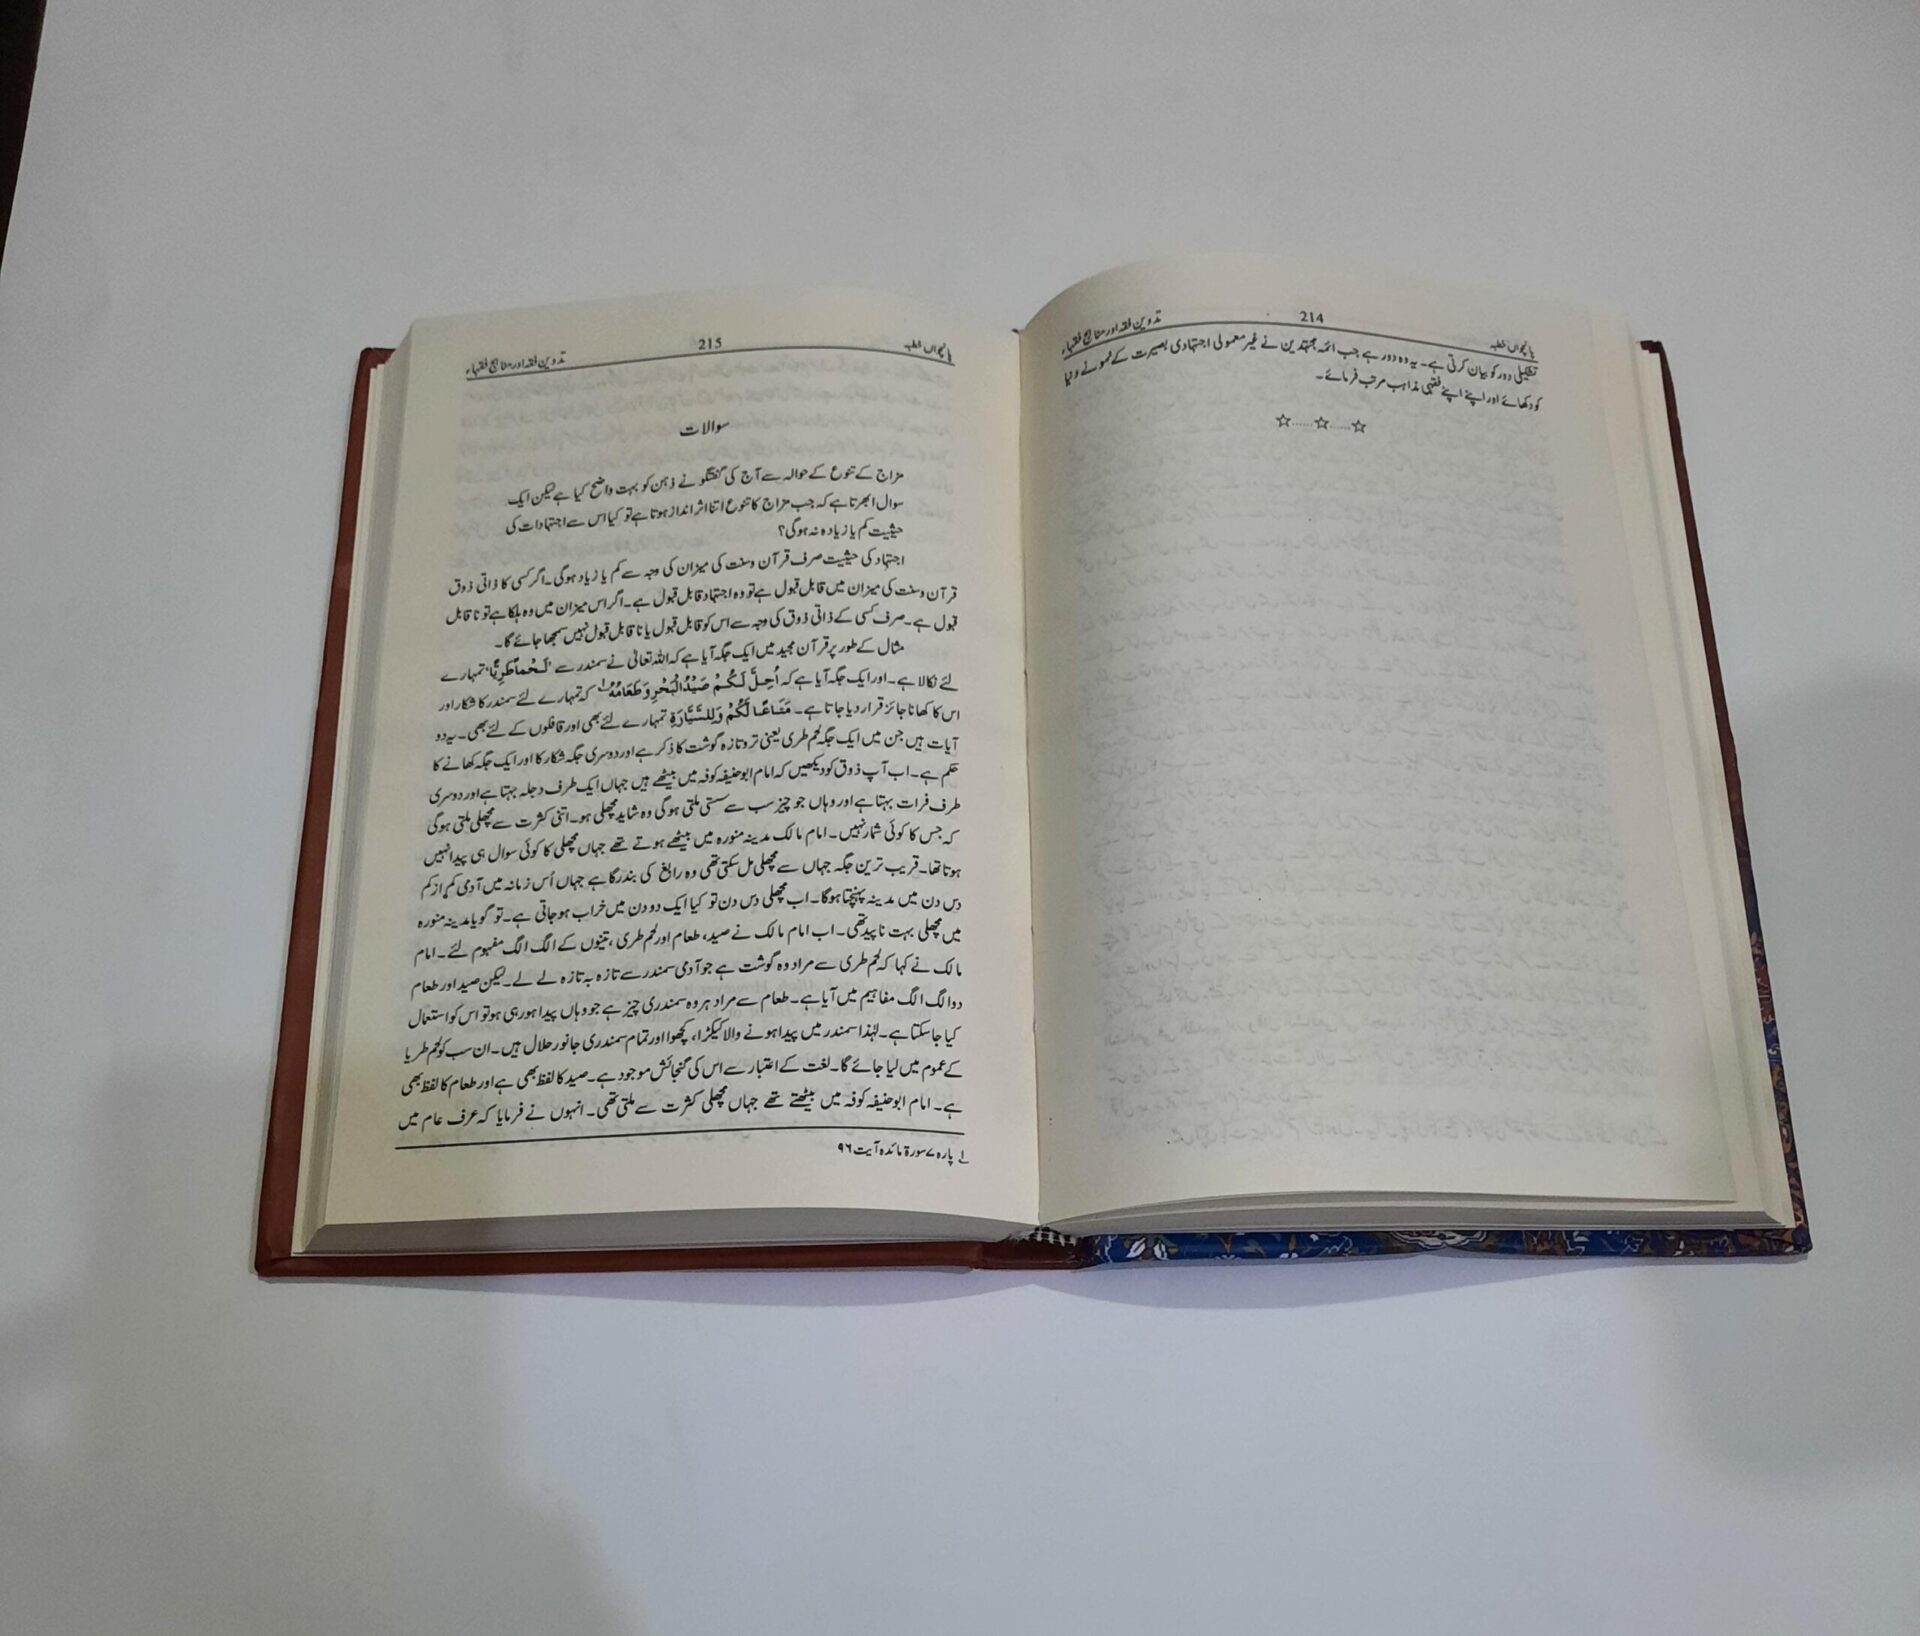 پانچواں خطبہ
214
تدوین فقہ اور مناہج فقہاء
تشکیلی دور کو بیان کرتی ہے۔ یہ وہ دور ہے جب ائمہ مجتہدین نے غیر معمولی اجتہادی بصیرت کے نمونے دنیا
کو دکھائے اور اپنے اپنے فقہی مذاہب مرتب فرمائے۔
☆......☆......☆
پانچواں خطبہ
215
تدوین فقہ اور مناہج فقہاء
سوالات
مزاج کے تنوع کے حوالہ سے آج کی گفتگو نے ذہن کو بہت واضح کیا ہے لیکن ایک
سوال ابھرتا ہے کہ جب مزاج کا تنوع اتنا اثر انداز ہوتا ہے تو کیا اس سے اجتہادات کی
حیثیت کم یا زیادہ نہ ہوگی؟
اجتہاد کی حیثیت صرف قرآن وسنت کی میزان کی وجہ سے کم یا زیاد ہوگی۔ اگر کسی کا ذاتی ذوق
قرآن وسنت کی میزان میں قابل قبول ہے تو وہ اجتہاد قابل قبول ہے۔ اگر اس میزان میں وہ ہلکا ہے تو نا قابل
قبول ہے۔ صرف کسی کے ذاتی ذوق کی وجہ سے اس کو قابل قبول یا نا قابل قبول نہیں سمجھا جائے گا۔
مثال کے طور پر قرآن مجید میں ایک جگہ آیا ہے کہ اللہ تعالیٰ نے سمندر سے 'لَحْماً طَرِيًّا' تمہارے
لئے نکالا ہے۔ اور ایک جگہ آیا ہے کہ أُحِلَّ لَكُمْ صَيْدُ الْبَحْرِ وَطَعَامُهُ ۱؎ کہ تمہارے لئے سمندر کا شکار اور
اس کا کھانا جائز قرار دیا جاتا ہے۔ مَتَاعًا لَّكُمْ وَلِلسَّيَّارَةِ تمہارے لئے بھی اور قافلوں کے لئے بھی۔ یہ دو
آیات ہیں جن میں ایک جگہ لحم طری یعنی تر و تازہ گوشت کا ذکر ہے اور دوسری جگہ شکار کا اور ایک جگہ کھانے کا
حکم ہے۔ اب آپ ذوق کو دیکھیں کہ امام ابوحنیفہ کوفہ میں بیٹھے ہیں جہاں ایک طرف دجلہ بہتا ہے اور دوسری
طرف فرات بہتا ہے اور وہاں جو چیز سب سے سستی ملتی ہوگی وہ شاید مچھلی ہو۔ اتنی کثرت سے مچھلی ملتی ہوگی
کہ جس کا کوئی شمار نہیں۔ امام مالک مدینہ منورہ میں بیٹھے ہوتے تھے جہاں مچھلی کا کوئی سوال ہی پیدا نہیں
ہوتا تھا۔ قریب ترین جگہ جہاں سے مچھلی مل سکتی تھی وہ رابغ کی بندرگا ہے جہاں اُس زمانہ میں آدمی کم از کم
دس دن میں مدینہ پہنچتا ہوگا۔ اب مچھلی دس دن تو کیا ایک دو دن میں خراب ہو جاتی ہے۔ تو گویا مدینہ منورہ
میں مچھلی بہت ناپید تھی۔ اب امام مالک نے صید، طعام اور لحم طری، تینوں کے الگ الگ مفہوم لئے۔ امام
مالک نے کہا کہ لحم طری سے مراد وہ گوشت ہے جو آدمی سمندر سے تازہ بہ تازہ لے لے۔ لیکن صید اور طعام
دو الگ الگ مفاہیم میں آیا ہے۔ طعام سے مراد ہر وہ سمندری چیز ہے جو وہاں پیدا ہو رہی ہو تو اس کو استعمال
کیا جا سکتا ہے۔ لہٰذا سمندر میں پیدا ہونے والا کیکڑا، کچھوا اور تمام سمندری جانور حلال ہیں۔ ان سب کو لحم طریا
کے عموم میں لیا جائے گا۔ لغت کے اعتبار سے اس کی گنجائش موجود ہے۔ صید کا لفظ بھی ہے اور طعام کا لفظ بھی
ہے۔ امام ابوحنیفہ کوفہ میں بیٹھتے تھے جہاں مچھلی کثرت سے ملتی تھی۔ انہوں نے فرمایا کہ عرف عام میں
۱؎ پارہ ۷ سورۃ مائدہ آیت ۹۶